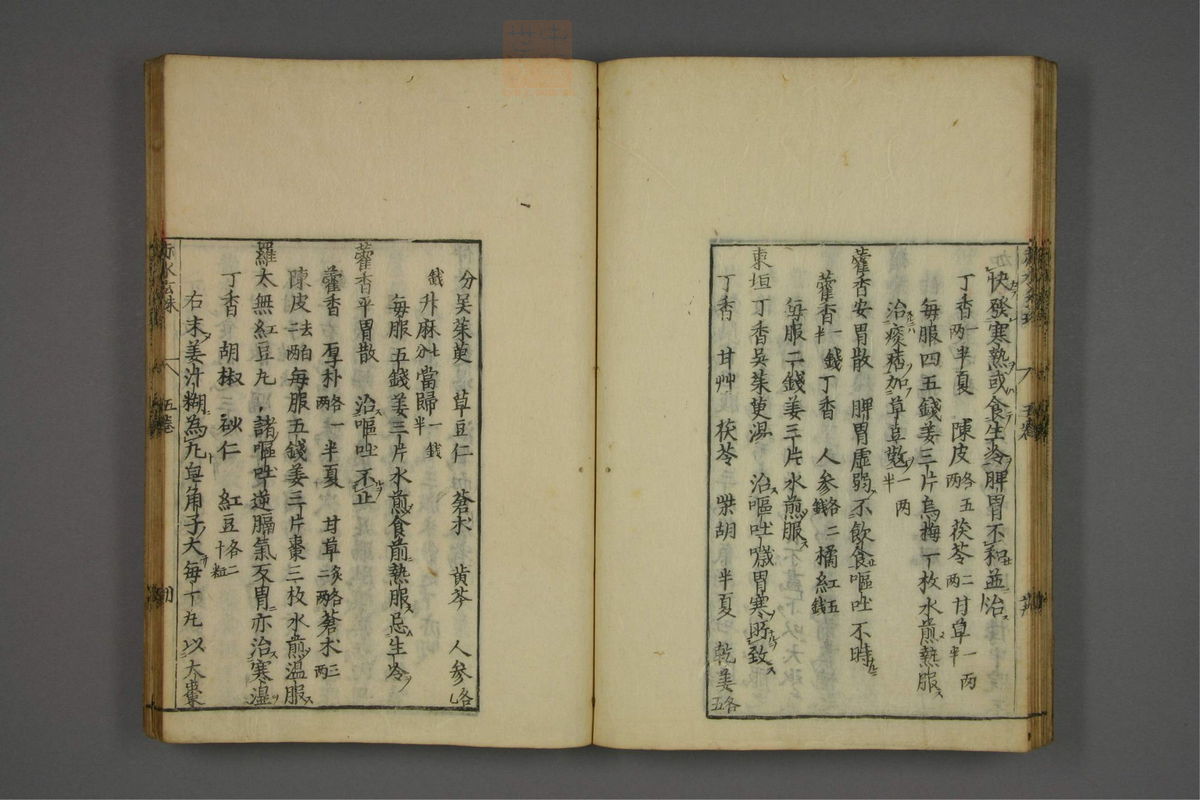 快發寒熱或食生冷脾胃不和並治
丁香一兩半夏 陳皮各五兩茯苓二兩甘草一兩半
每服四五錢姜三片烏梅一枚水煎熱服
治痰痞加草菓一兩半
藿香安胃散 脾胃虛弱不飲食嘔吐不時
藿香一錢半丁香 人參各二錢橘紅五錢
每服二錢姜三片水煎服
東垣丁香吳茱萸湯 治嘔吐噦胃寒所致
丁香 甘艸 茯苓 柴胡 半夏 乾姜各五
分吳茱萸 草豆仁 蒼朮 黄芩 人參各七
錢升麻七分當歸一錢半
每服五錢姜三片水煎食前熱服忌生冷
藿香平胃散 治嘔吐不止
藿香 厚朴各一兩 半夏 甘草炙各二兩蒼朮三兩
陳皮去白二兩每服五錢姜三片棗三枚水煎温服
羅太無紅豆丸 諸嘔吐逆膈氣反胃亦治寒濕
丁香 胡椒 砂仁 紅豆各二十粒
右末姜汁糊為丸皂角子大每丁丸以大棗
五巻